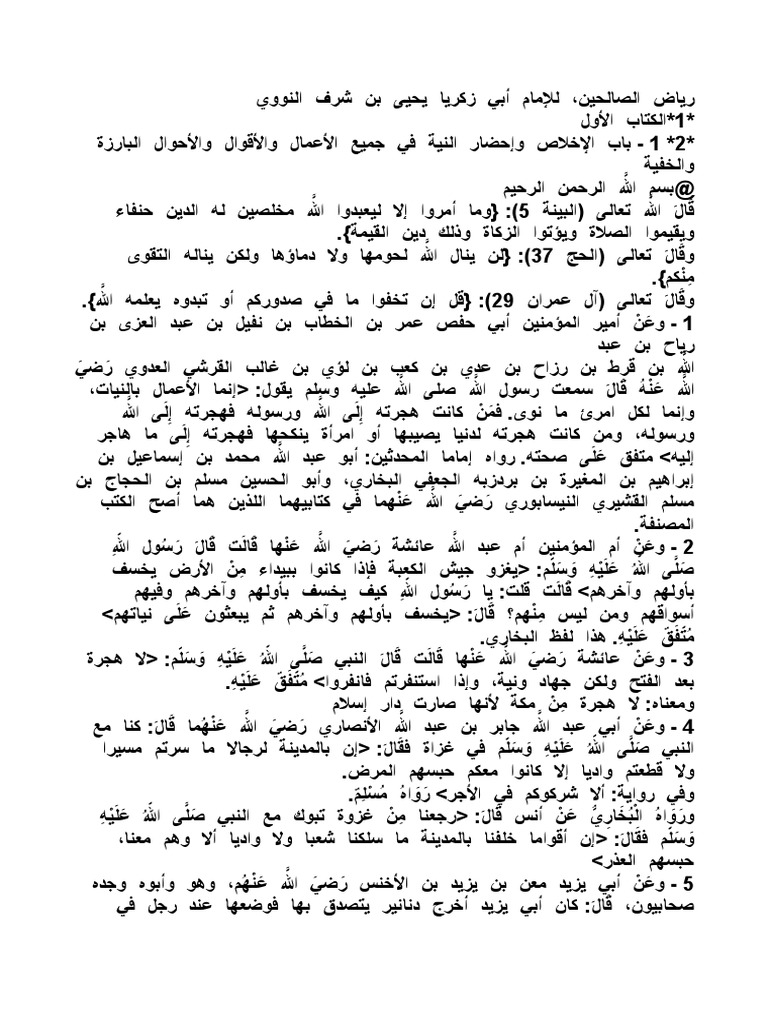 رياض الصالحين، للإمام أبي زكريا يحيى بن شرف النووي
*1*الكتاب الأول
*2* 1 - باب الإخلاص وإحضار النية في جميع الأعمال والأقوال والأحوال البارزة
والخفية
@بسم اللَّه الرحمن الرحيم
قَالَ اللَّه تعالى (البينة 5): {وما أمروا إلا ليعبدوا اللَّه مخلصين له الدين حنفاء
ويقيموا الصلاة ويؤتوا الزكاة وذلك دين القيمة}.
وقَالَ تعالى (الحج 37): {لن ينال اللَّه لحومها ولا دماؤها ولكن يناله التقوى
مِنْكم}.
وقَالَ تعالى (آل عمران 29): {قل إن تخفوا ما في صدوركم أو تبدوه يعلمه اللَّه}.
1 - وعَنْ أمير المؤمنين أبي حفص عمر بن الخطاب بن نفيل بن عبد العزى بن
رياح بن عبد
اللَّه بن قرط بن رزاح بن عدي بن كعب بن لؤي بن غالب القرشي العدوي رَضيَ
اللَّه عَنْهُ قَالَ سمعت رسول اللَّه صلى اللَّه عليه وسلم يقول: <إنما الأعمال بالنيات،
وإنما لكل امرئ ما نوى. فمَنْ كانت هجرته إِلَى اللَّه ورسوله فهجرته إِلَى اللَّه
ورسوله، ومن كانت هجرته لدنيا يصيبها أو امرأة ينكحها فهجرته إِلَى ما هاجر
إليه> متفق عَلَى صحته. رواه إماما المحدثين: أبو عبد اللَّه محمد بن إسماعيل بن
إبراهيم بن المغيرة بن بردزبه الجعفي البخاري، وأبو الحسين مسلم بن الحجاج بن
مسلم القشيري النيسابوري رَضيَ اللَّه عَنْهما في كتابيهما اللذين هما أصح الكتب
المصنفة.
2 - وعَنْ أم المؤمنين أم عبد اللَّه عائشة رَضيَ اللَّه عَنْها قَالَت قَالَ رَسُول اللَّهِ
صَلَّى اللَّهُ عَلَيْهِ وَسَلَّم: <يغزو جيش الكعبة فإذا كانوا ببيداء مِنْ الأرض يخسف
بأولهم وآخرهم> قَالَت قلت: يا رَسُول اللَّهِ كيف يخسف بأولهم وآخرهم وفيهم
أسواقهم ومن ليس مِنْهم؟ قَالَ: <يخسف بأولهم وآخرهم ثم يبعثون عَلَى نياتهم>
مُتَّفَقٌ عَلَيْهِ. هذا لفظ البخاري.
3 - وعَنْ عائشة رَضيَ اللَّه عَنْها قَالَت قَالَ النبي صَلَّى اللَّهُ عَلَيْهِ وَسَلَّم: <لا هجرة
بعد الفتح ولكن جهاد ونية، وإذا استنفرتم فانفروا> مُتَّفَقٌ عَلَيْهِ.
ومعناه: لا هجرة مِنْ مكة لأنها صارت دار إسلام
4 - وعَنْ أبي عبد اللَّه جابر بن عبد اللَّه الأنصاري رَضيَ اللَّه عَنْهُما قَالَ: كنا مع
النبي صَلَّى اللَّهُ عَلَيْهِ وَسَلَّم في غزاة فقَالَ: <إن بالمدينة لرجالا ما سرتم مسيرا
ولا قطعتم واديا إلا كانوا معكم حبسهم المرض.
وفي رواية: ألا شركوكم في الأجر> رَوَاهُ مُسْلِمٌ.
ورَوَاهُ الْبُخَارِيُّ عَنْ أنس قَالَ: <رجعنا مِنْ غزوة تبوك مع النبي صَلَّى اللَّهُ عَلَيْهِ
وَسَلَّم فقَالَ: <إن أقواما خلفنا بالمدينة ما سلكنا شعبا ولا واديا ألا وهم معنا،
حبسهم العذر>
5 - وعَنْ أبي يزيد معن بن يزيد بن الأخنس رَضيَ اللَّه عَنْهُم، وهو وأبوه وجده
صحابيون، قَالَ: كان أبي يزيد أخرج دنانير يتصدق بها فوضعها عند رجل في